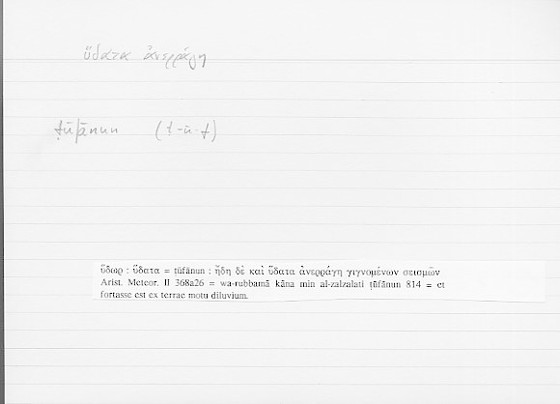 ὕδατα ἀνερράγη
ṭūfānun (ṭ-ū-f)
ὕδωρ : ὕδατα = ṭūfānun : ἤδη δὲ καὶ ὕδατα ἀνερράγη γιγνομένων σεισμῶν
Arist. Meteor. II 368a26 = wa-rubbamā kāna min al-zalzalati ṭūfānun 814 = et
fortasse est ex terrae motu diluvium.